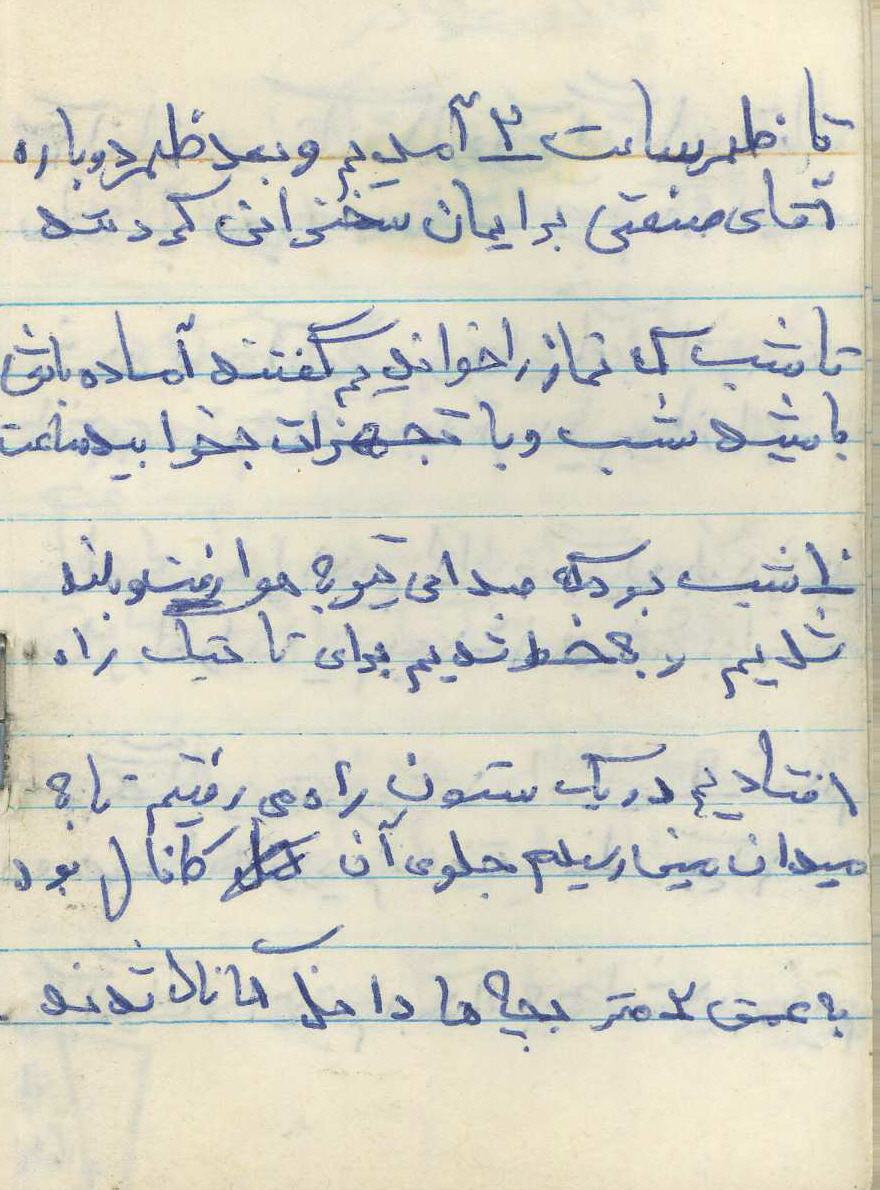 تا ظهر سایت ۳ آمدیم و بعد ظهر دوباره
آقای صنعتی برایمان سخنرانی کردند
تا شب که نماز را خواندیم گفتند آماده باش
باشید شب و با تجهزات بخوابید ساعت
۱۰ شب بود که صدای به هوا رفت و بلند
شدیم و به خط شدیم برای تاکتیک راه
افتادیم در یک ستون راه می رفتیم تا به
میدان مین رسیدیم جلوی آن کانال بود
به عمق ۲ متر بچه ها داخل کانال شدند .